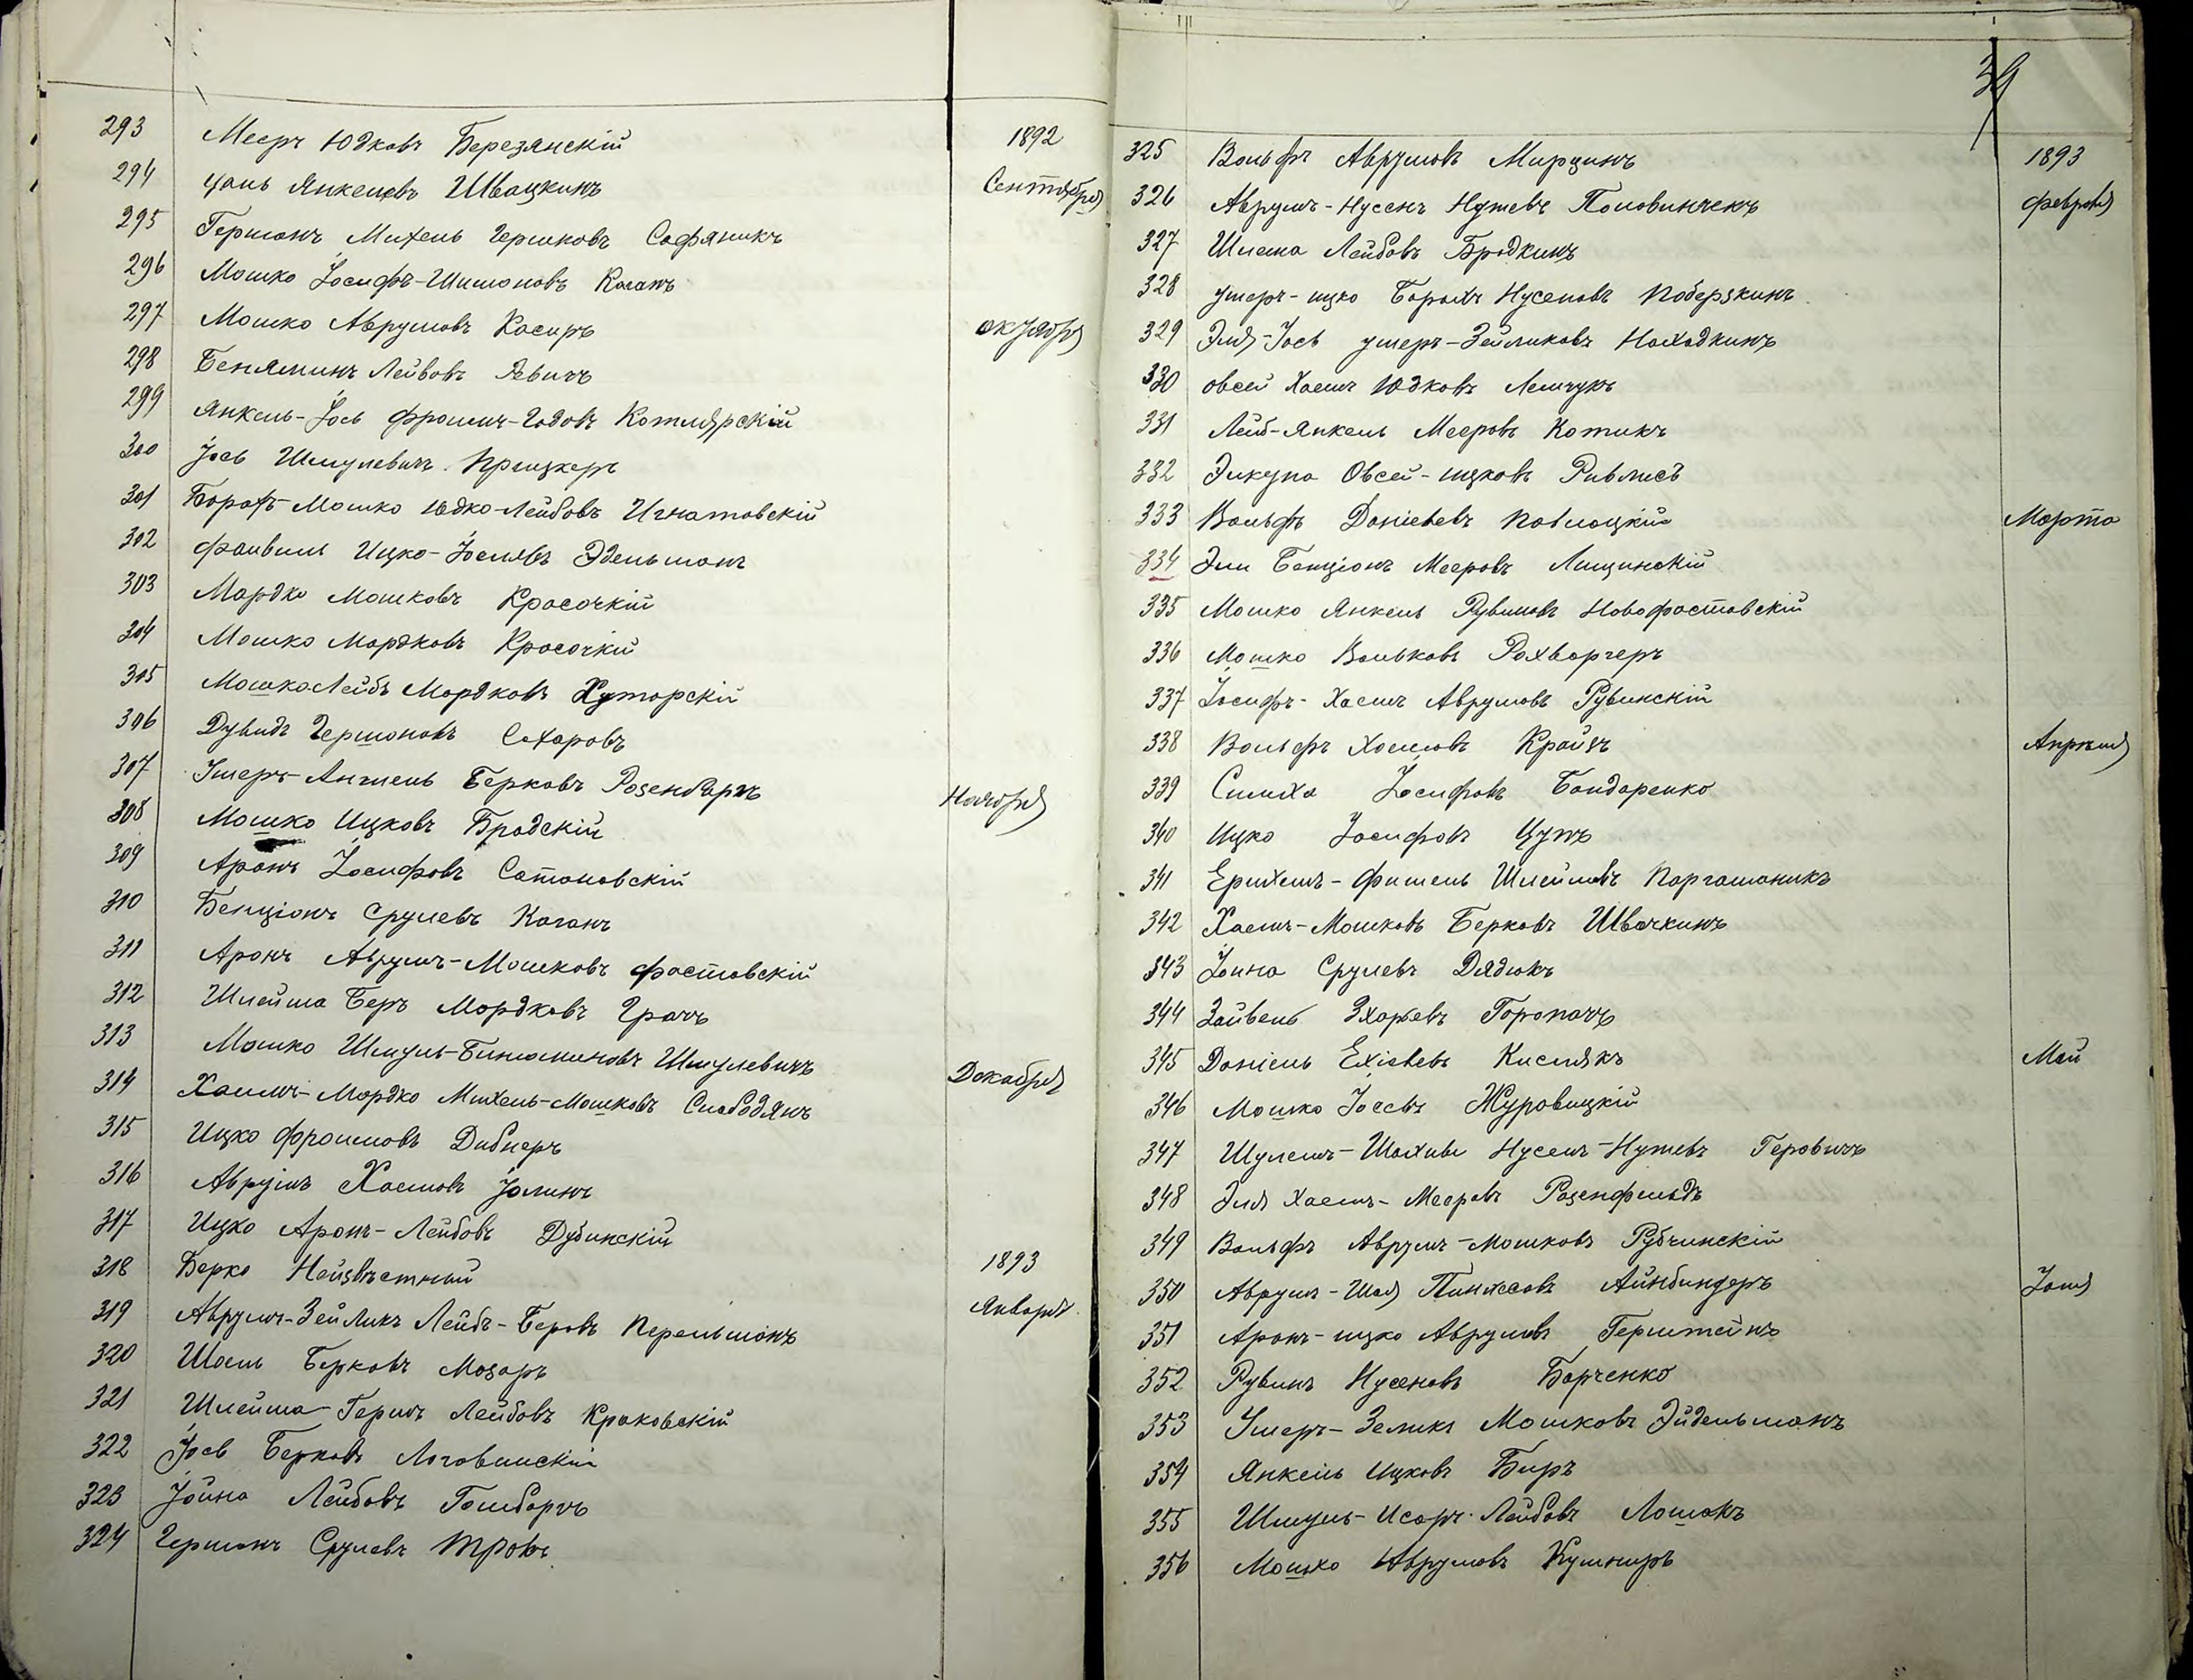 293 Мееръ Юдковъ Березянскій 1892
294 Янкелевъ Швацкинъ Сентября
295 Гершонъ Михель Гершковъ Софяникъ
296 Мошко Іосифъ-Шимоновъ Коганъ
297 Мошко Аврумовъ Косиръ октября
298 Беняминъ Лейвовъ Явичъ
299 Янкель-Іось Фроимъ-Годовъ Котлярскій
300 Іось Шмулевичъ Прицкеръ
301 Борохъ-Мошко Юдко-Лейбовъ Игнатовскій
302 Файвиль Ицко-Іослевъ Эдельманъ
303 Мордко Мошковъ Красочкій
304 Мошко Мордковъ Красочкій
305 Мошко Лейбъ Мордковъ Хуторскій
306 Дувидъ Гершоновъ Сахаровъ
307 Ушеръ-Анчель Берковъ Розенбаргъ Ноября
308 Мошко Ицковъ Бродскій
309 Аронъ Іосифовъ Сатановскій
310 Бенціонъ Срулевъ Коганъ
311 Аронъ Аврумъ-Мошковъ Фастовскій
312 Шлейма Беръ Мордковъ Грачъ
313 Мошко Шмуль-Биноминовъ Шмулевичъ
314 Хаимъ-Мордко Михель-Мошковъ Слободянъ Декабря
315 Ицко Фроимовъ Дибнеръ
316 Аврумъ Хаимовъ Іолинъ
317 Ицко Аронъ-Лейбовъ Дубинскій
318 Берко Неизвѣстный 1893
319 Аврумъ-Зейликъ Лейбъ-Беровъ Перельманъ Января
320 Шоель Берковъ Мозаръ
321 Шлейма-Гершъ Лейбовъ Краковскій
322 Іось Берковъ Логовинскій
323 Іойна Лейбовъ Гольбарчъ
324 Гершонъ Срулевъ
39
325 Вольфъ Аврумовъ Мирцинъ 1893
326 Аврумъ-Нусенъ Нутевъ Половинчекъ февраля
327 Шлема Лейбовъ Бродкинъ
328 ушеръ-ицко Борохъ Нусеновъ Поберзкинъ
329 Эля-Іось ушеръ-Зейликовъ Находкинъ
330 овсей Хаимъ Юдковъ Лемчукъ
331 Лейб-Янкель Мееровъ Котикъ
332 Эикуна Овсей-ицковъ Ривлисъ
333 Вольфъ Даніелевъ Поволоцкій Марта
334 Эли Бенціонъ Мееровъ Лищинскій
335 Мошко Янкель Рувиновъ Новофастовскій
336 Мошко Вольковъ Рохваргеръ
337 Іосифъ-Хаимъ Аврумовъ Рувинскій
338 Вольфъ Хаимовъ Крайзъ Апрѣля
339 Симха Іосифовъ Бондаренко
340 Ицко Іосифовъ Цупъ
341 Ерихемъ-Фишель Шлеймовъ Паргаманикъ
342 Хаимъ-Мошковъ Берковъ Швачкинъ
343 Іоина Срулевъ Дядюкъ
344 Зайвель Зхарьевъ Горопачъ
345 Даніель Ехіелевъ Кислякъ Май
346 Мошко Іосевъ Журовицкій
347 Шулемъ-Шахнъ Нусенъ-Нутевъ Геровичъ
348 Эля Хаимъ-Мееровъ Розенфельдъ
349 Вольфъ Аврумъ-Мошковъ Рубчинскій
350 Аврумъ-Шая Пинхасовъ Айнбиндеръ Іюня
351 Аронъ-ицко Аврумовъ Герштейнъ
352 Рувинъ Нусеновъ Борченко
353 Ушеръ-Зеликъ Мошковъ Эйдельманъ
354 Янкель Ицковъ Биръ
355 Шмуль-Исаръ Лейбовъ Лошакъ
356 Мошко Аврумовъ Кушниръ